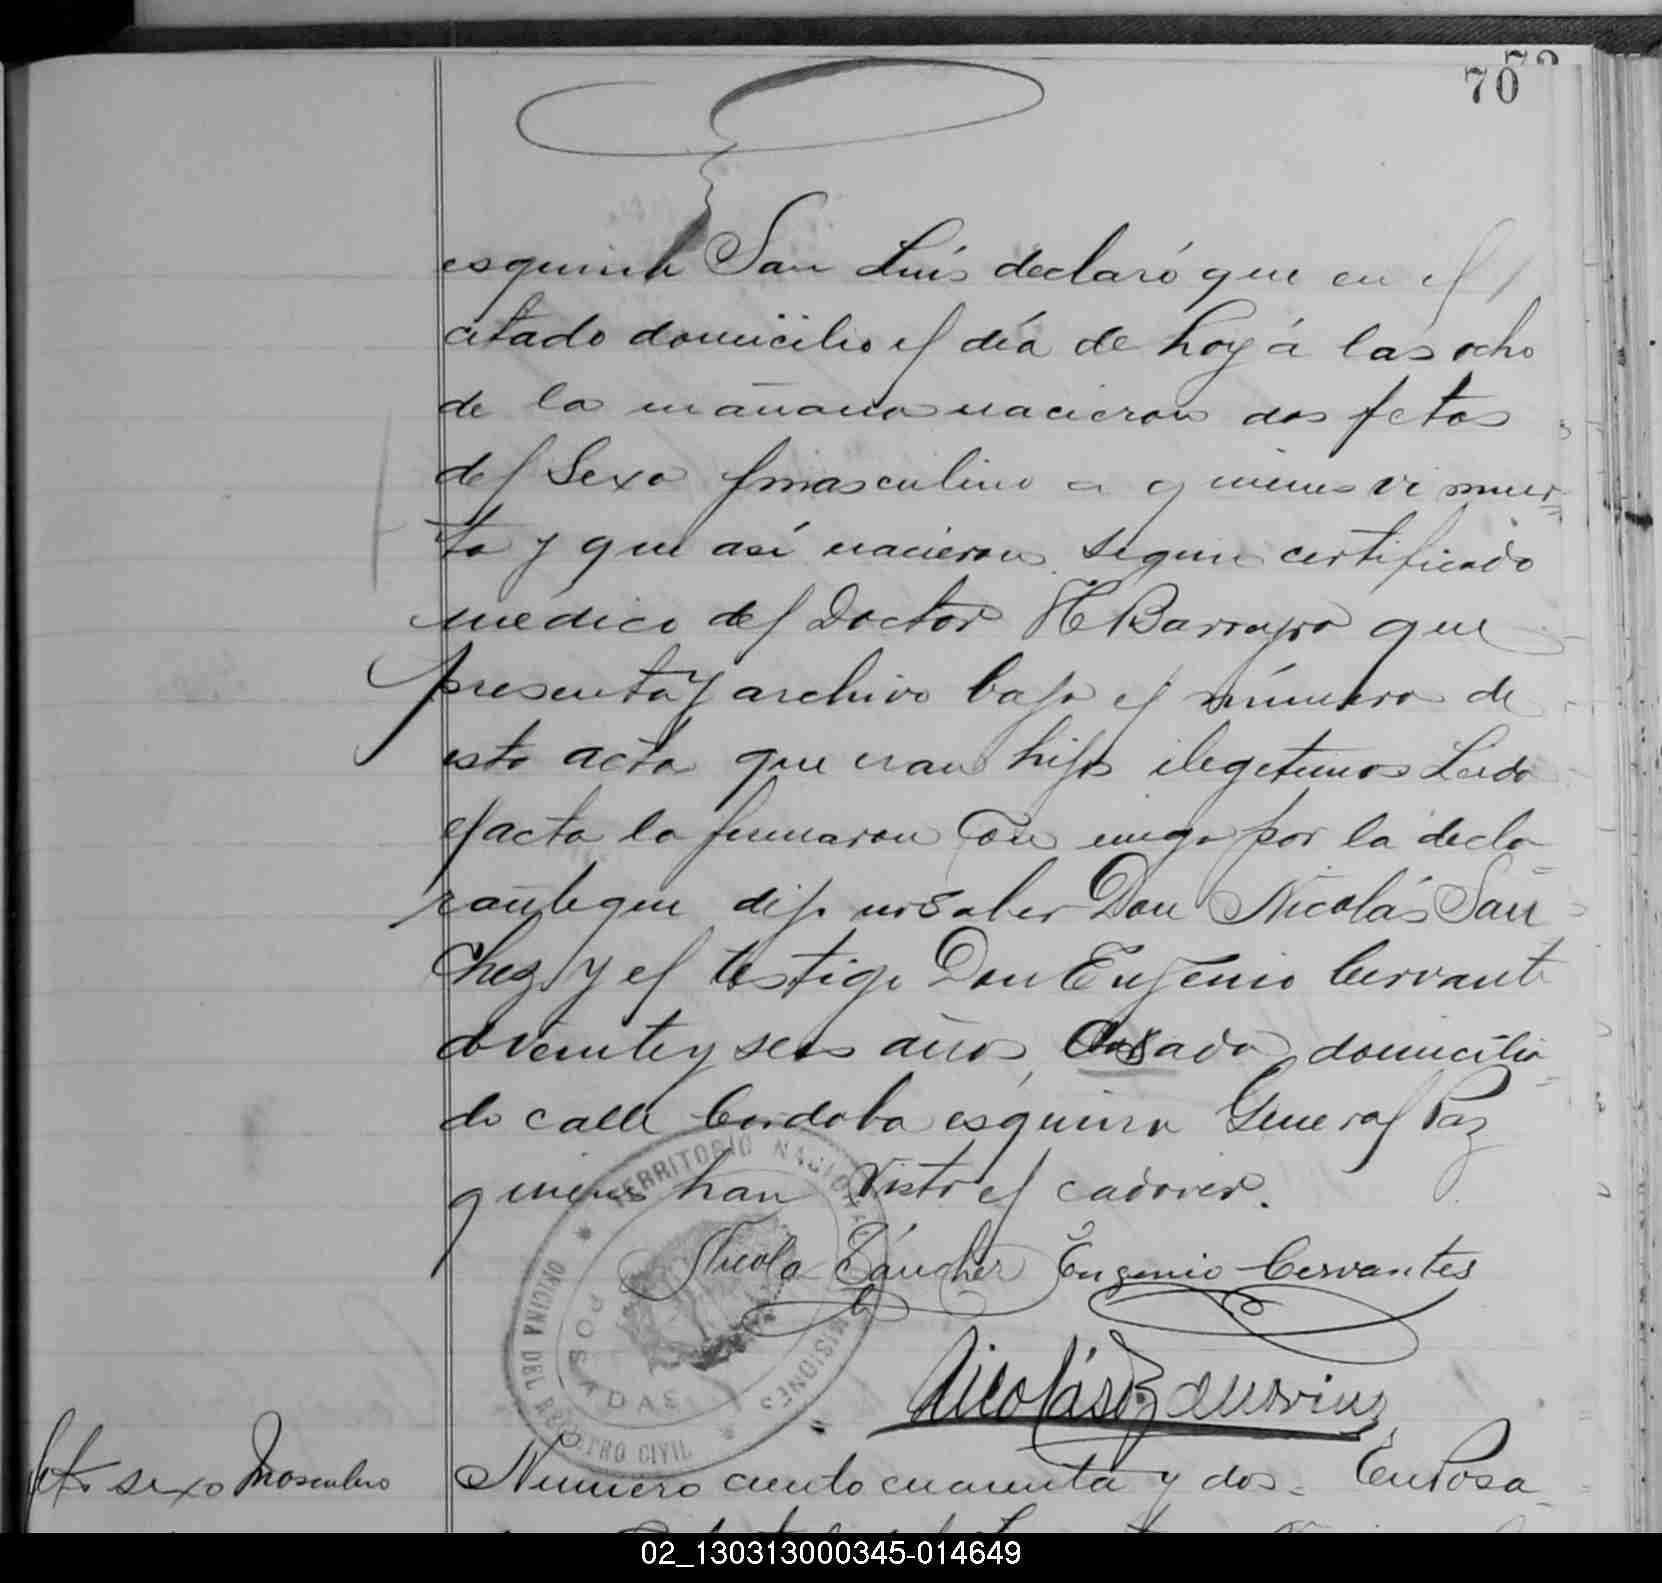 72
70
esquina San Luís declaró que en el
citado domicilio el día de hoy á las ocho
de la mañana nacieron dos fetos
del Sexo masculino a quienes vi muer-
to y que así nacieron segun certificado
medico del Doctor H Barreyro que
presenta y archivo bajo el número de
esta acta que eran hijos ilegetimos Leida
el acta la firmaron Con migo por la decla-
rante que dijo no Saber Don Nicolás San
Chez y el testigo Don Eugenio Cervante
de veinte y seis años, Casado, domicilia-
do calle Cordoba esquina General Paz
quienes han Visto el cadaver.
Nicola Sánchez Eugenio Cervantes
TERRITORIO NACIONAL MISIONES
OFICINA DEL REGISTRO CIVIL
POSADAS
Nicolás
feto sexo Masculino
Numero ciento cuarenta y dos = En Posa-
02_130313000345-014649